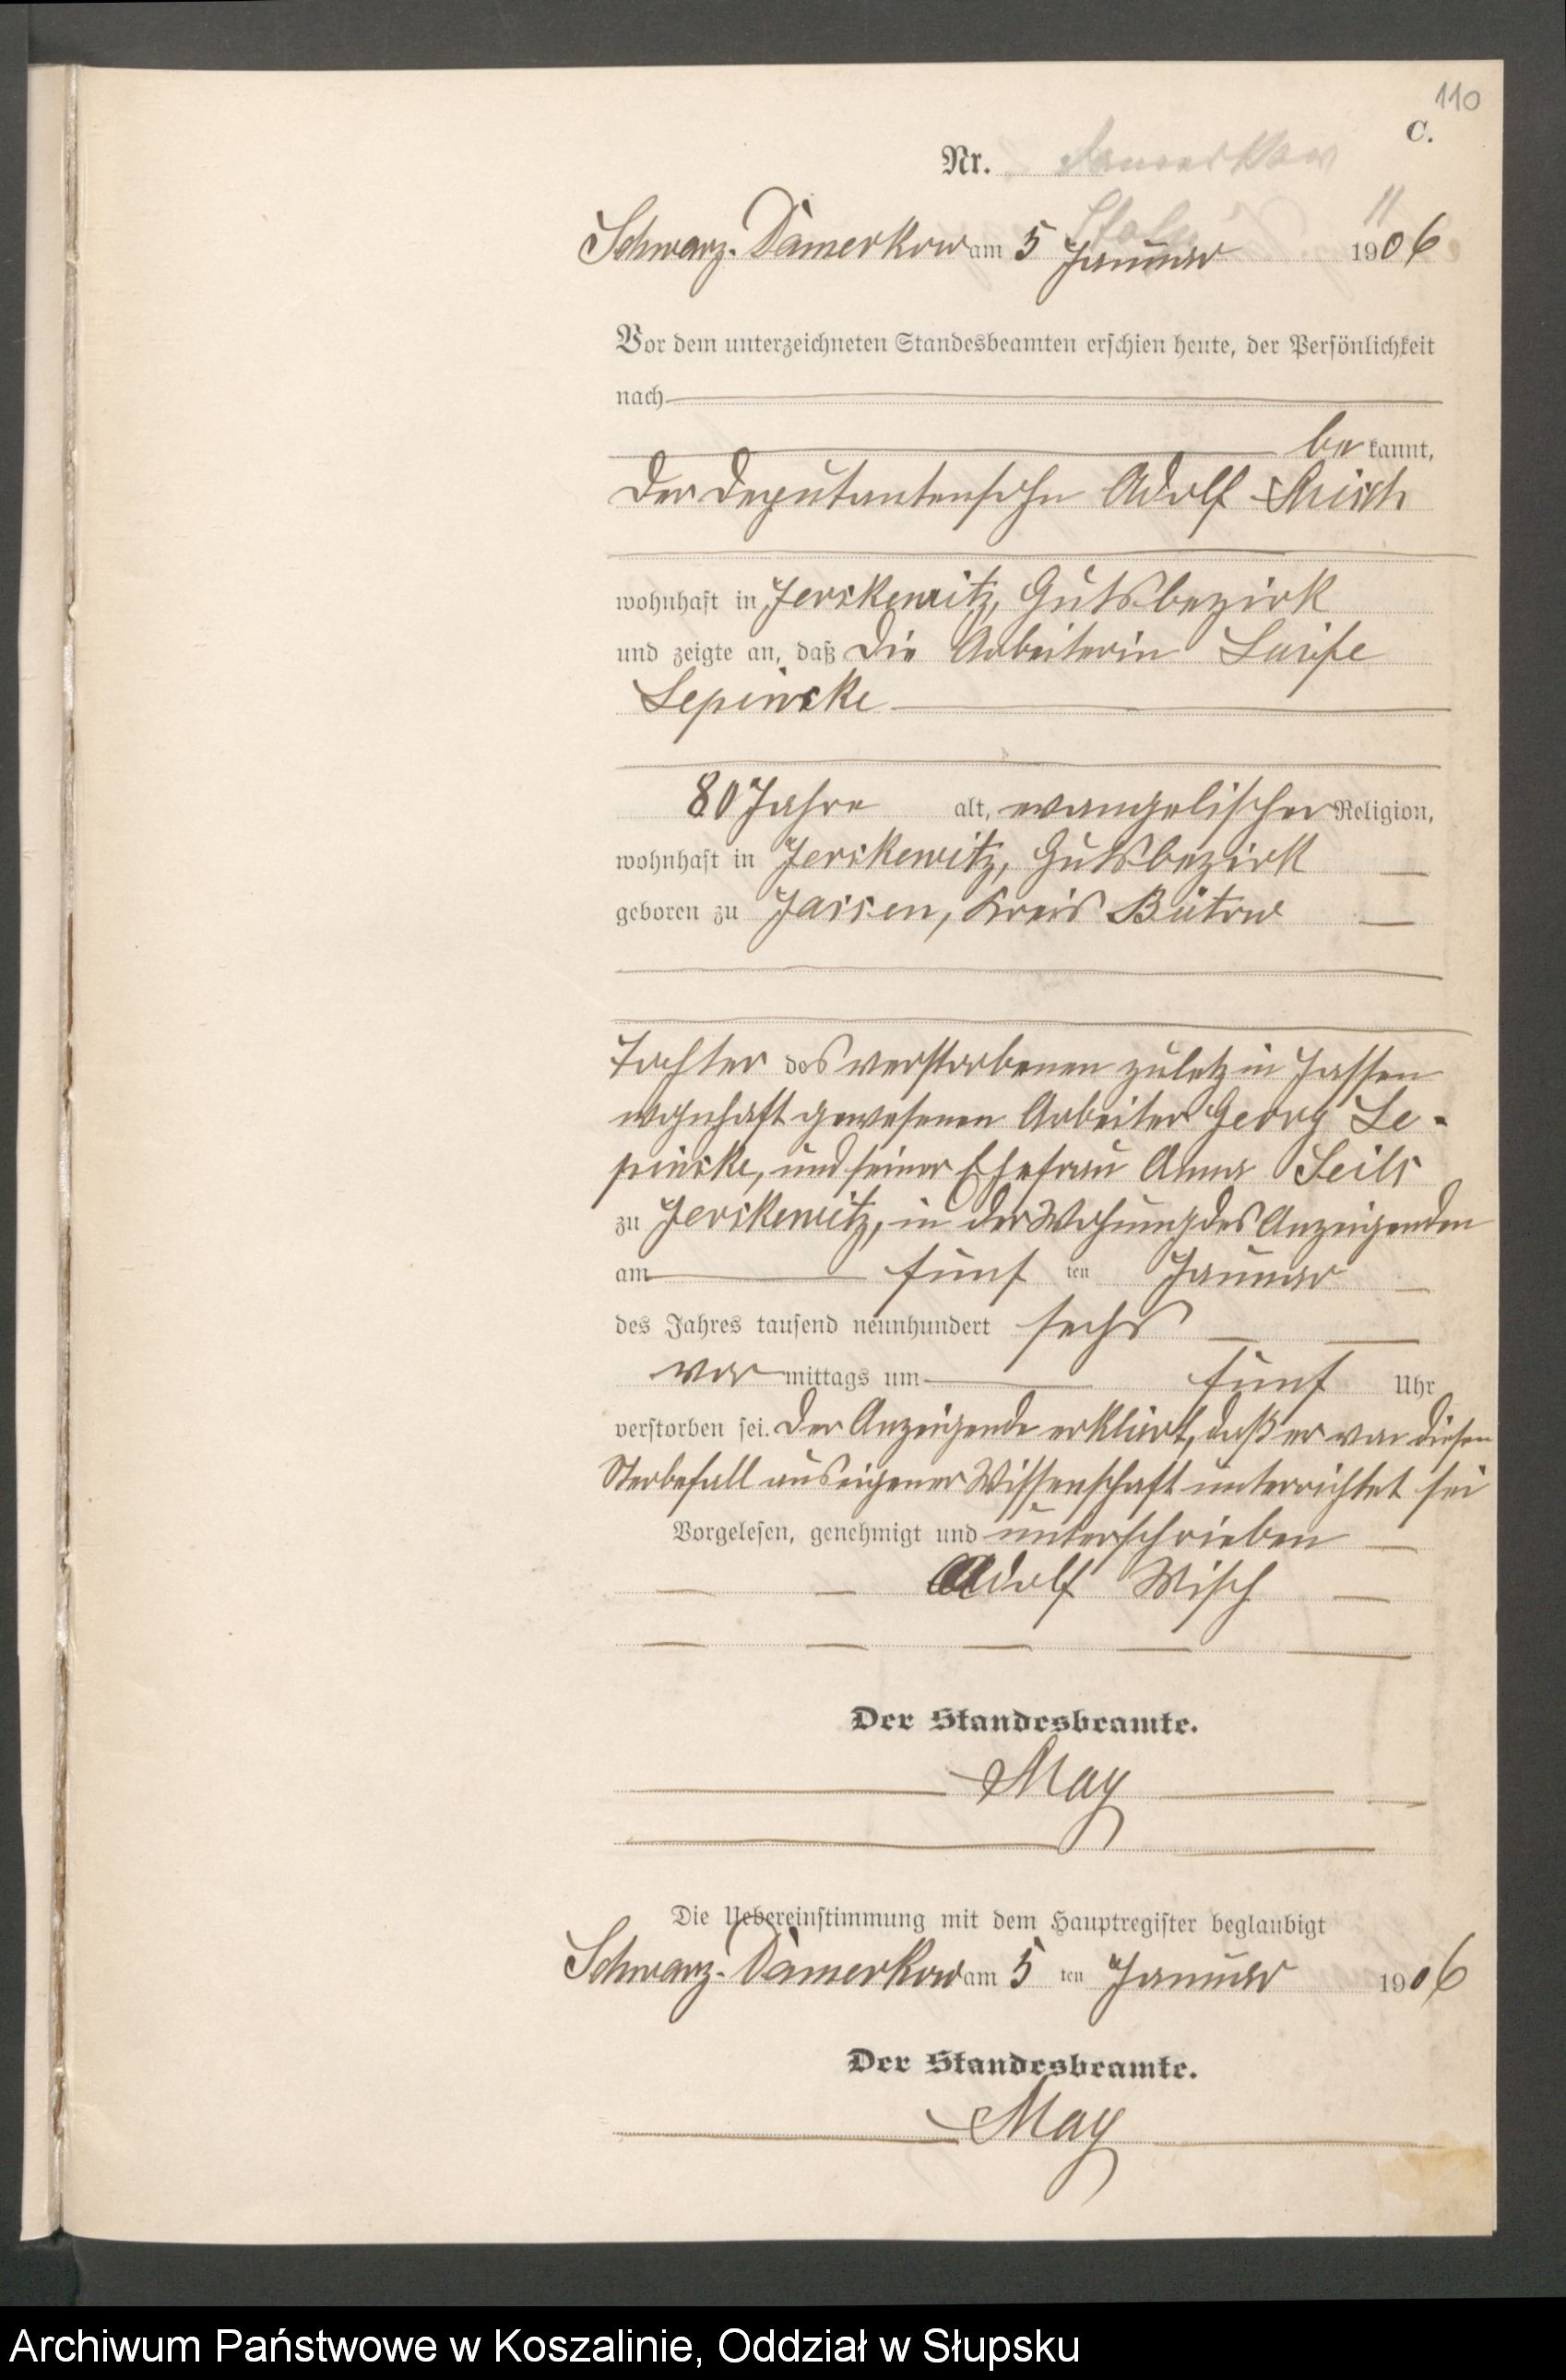 110
C.
Nr.
Schwarz-Damerkow am 5 Januar 1906
Vor dem unterzeichneten Standesbeamten erschien heute, der Persönlichkeit
nach
be kannt,
der Deputantensohn Adolf
wohnhaft in Jerskewitz, Gutsbezirk
und zeigte an, daß die Arbeiterin Luise
Lepinske
80 Jahre alt, evangelischer Religion,
wohnhaft in Jerskewitz, Gutsbezirk
geboren zu Jassen, Kreis Bütow
Tochter des verstorbenen zuletz in Jassen
wohnhaft gewesenen Arbeiter Georg Le-
pinske, und seiner Ehefrau Anna Seils
zu Jerskewitz, in der Wohnung des Anzeigenden
am fünf ten Januar
des Jahres tausend neunhundert sechs
vor mittags um fünf Uhr
verstorben sei. Der Anzeigende erklärt, daß er von diesen
Sterbefall aus eigener Wissenschaft unterrichtet sei
Vorgelesen, genehmigt und unterschrieben
Adolf Misch
Der Standesbeamte.
May
Die Uebereinstimmung mit dem Hauptregister beglaubigt
Schwarz-Damerkow am 5 ten Januar 1906
Der Standesbeamte.
May
Archiwum Państwowe w Koszalinie, Oddział w Słupsku